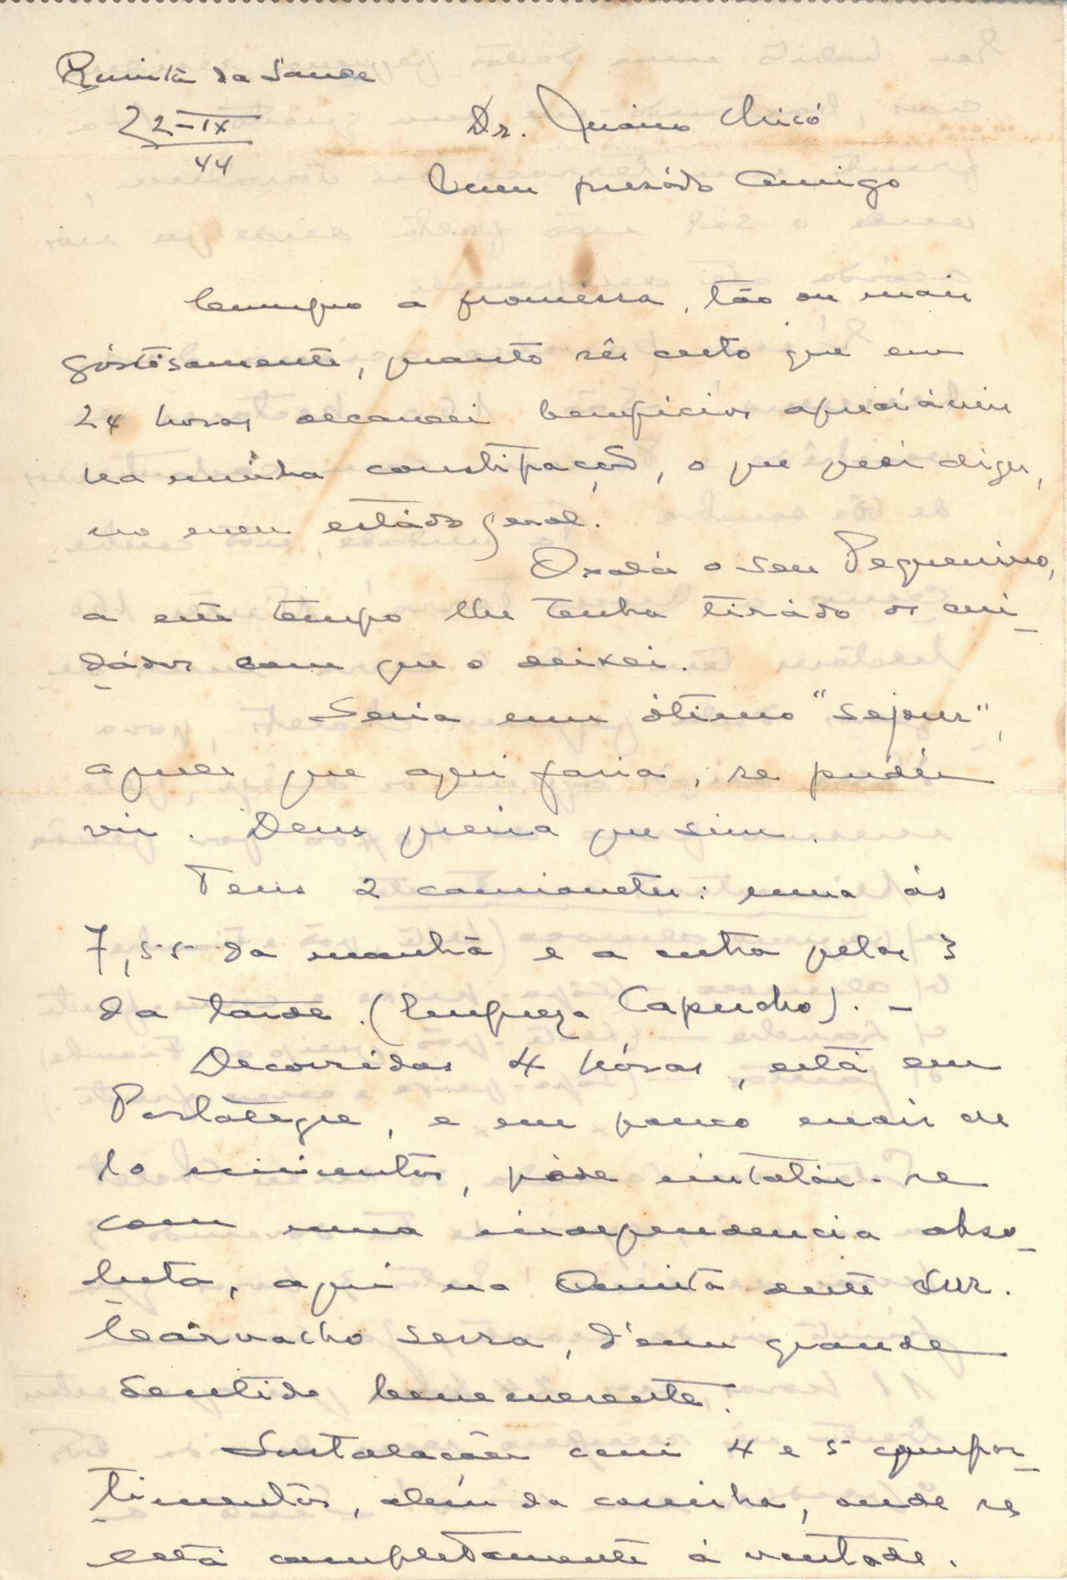 Quinta da Saude
22-IX
44
Dr. Mário Chicó
Meu prezádo Amigo
Cumpro a promessa, tão ou mais
gôstósamente, quanto sei certo que em
24 horas alcancei beneficios apreciáveis
na minha constipação, o que quer dizer,
no meu estádo geral.
Oxalá o seu Pequenino,
a este tempo lhe tenha tirádo os cui-
dádos com que o deixei.
Seria um ótimo "sejour",
aquele que aqui faria, se pudér
vir. Deus queira que sim.
Tens 2 camionetes: uma ás
7,55 da manhã e a outra pelas 3
da tarde. (Empreza Capucho). -
Decorridas 4 hóras, está em
Portalegre, e em pouco mais de
10 minutos, póde instalár-se
com uma independencia abso-
luta, aqui na Quinta deste Snr.
Carvalho Serra, d'um grande
sentido benemerente.
Instalações com 4 e 5 compar-
timentos, além da cosinha, onde se
está completamente á vontade.